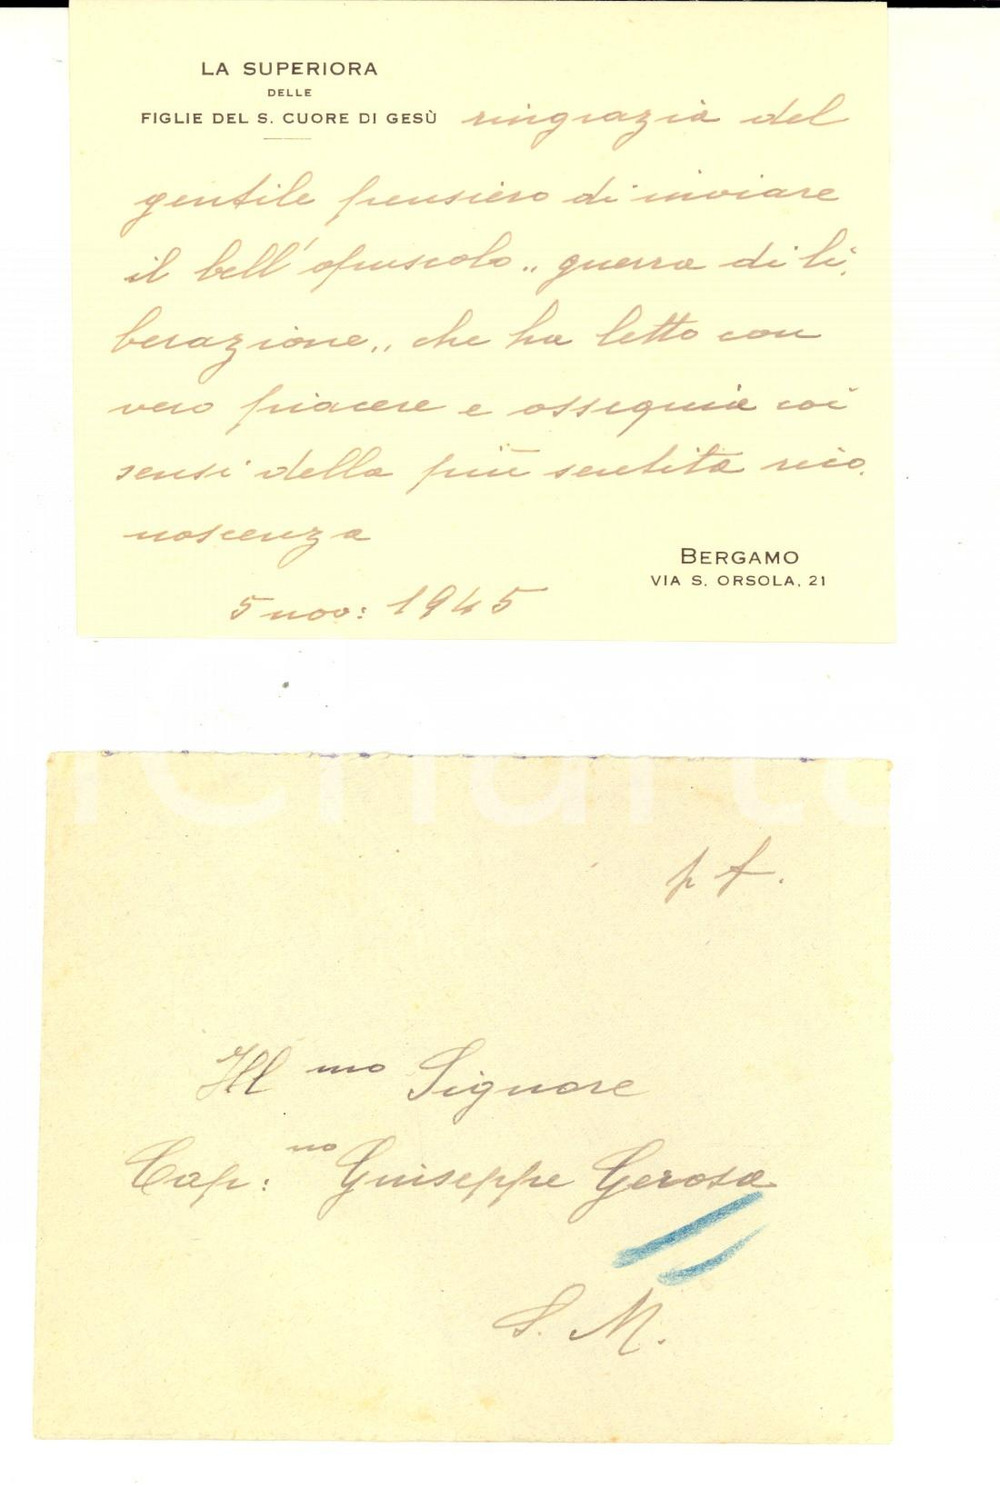 LA SUPERIORA
DELLE
FIGLIE DEL S. CUORE DI GESÙ ringrazia del
gentile pensiero di inviare
il bell'opuscolo „ guerra di li,
berazione „ che ha letto con
vero piacere e ossequia coi
sensi della più sentita rico,
noscenza
BERGAMO
VIA S. ORSOLA, 21
5 nov: 1945
p f.
Ill mo Signore
Cap: no Giuseppe Gerosa
S. M.